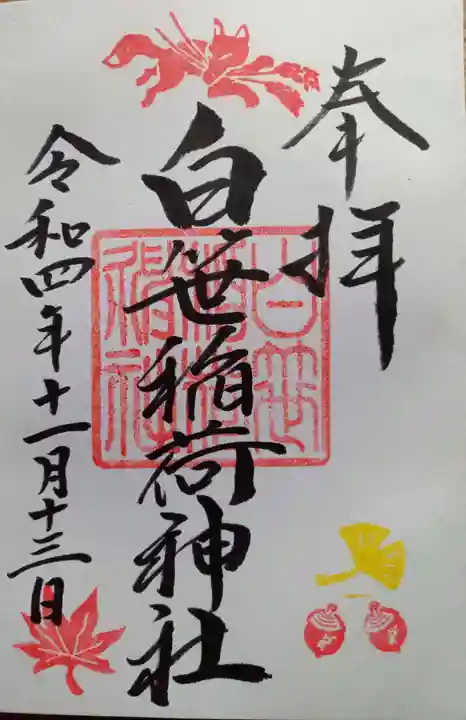 奉拝
白笹稲荷神社
令和四年十一月十三日
白笹
稲荷
神社